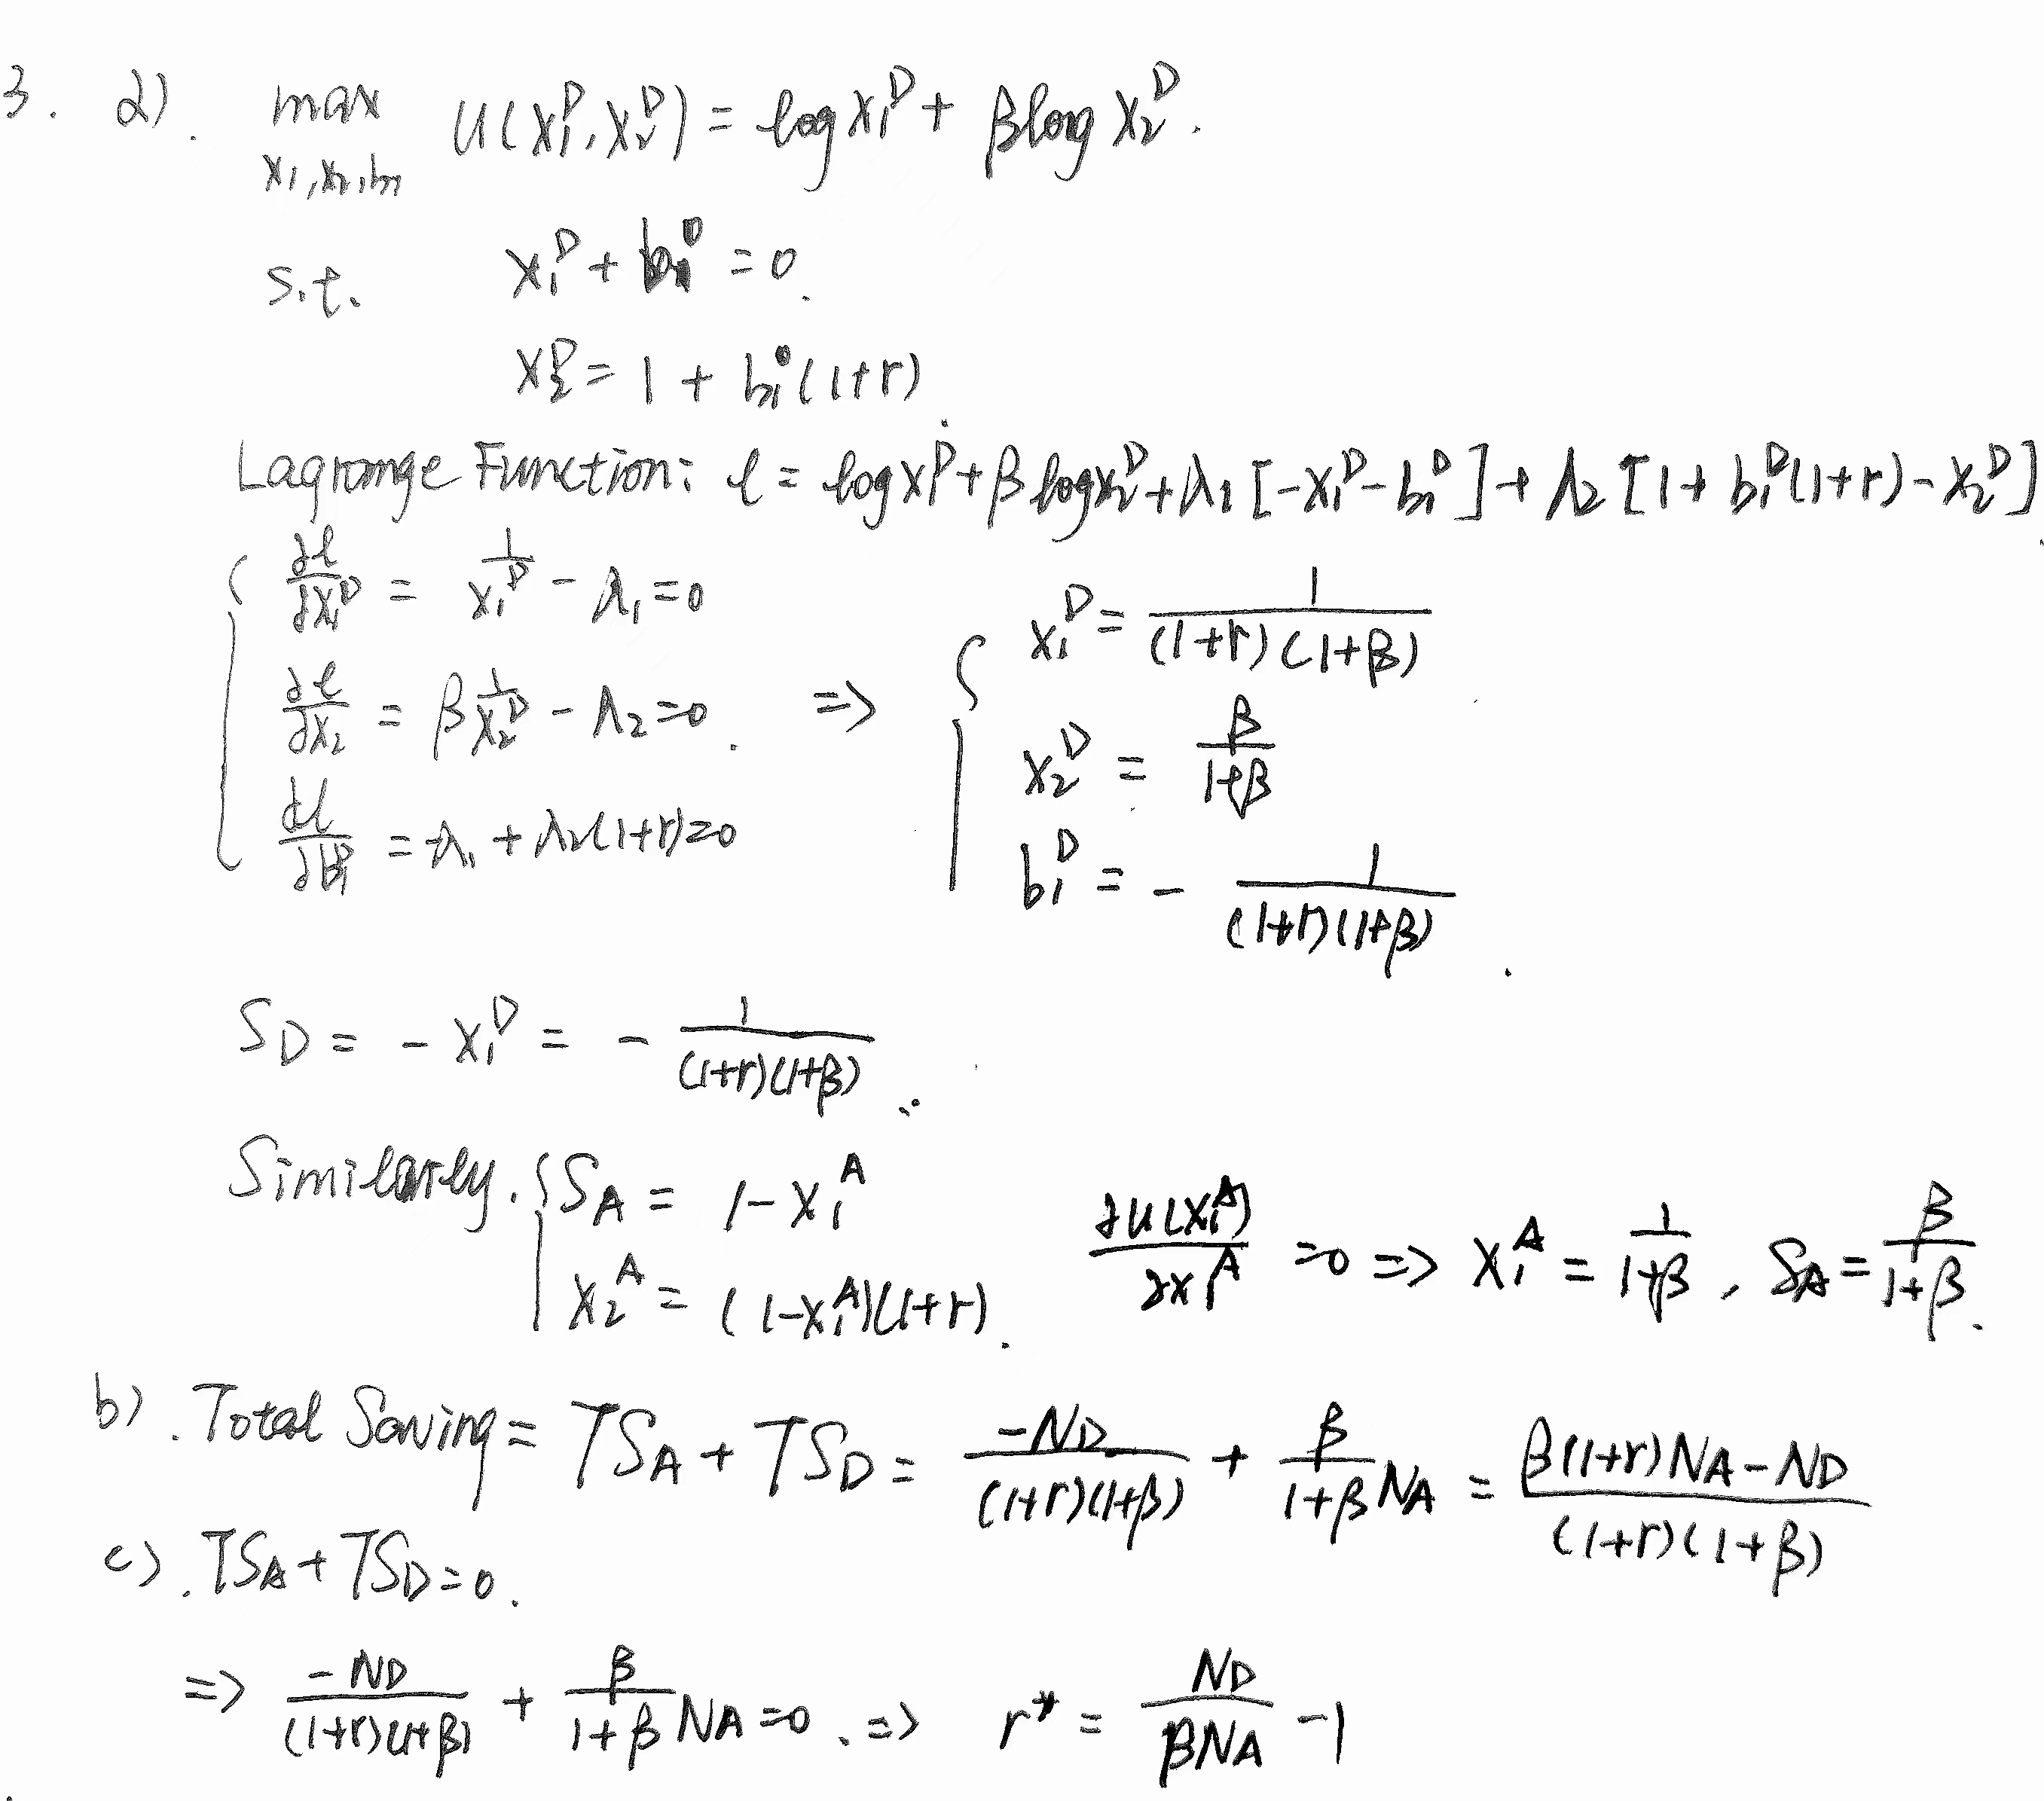 3. a). max U(x₁ᴰ, x₂ᴰ) = log x₁ᴰ + β log x₂ᴰ.
x₁, x₂, b₁
s.t. x₁ᴰ + b₁ᴰ = 0.
x₂ᴰ = 1 + b₁ᴰ(1+r).
Lagrange Function: ℓ = log x₁ᴰ + β log x₂ᴰ + λ₁[-x₁ᴰ - b₁ᴰ] + λ₂[1 + b₁ᴰ(1+r) - x₂ᴰ].
{ ∂ℓ/∂x₁ᴰ = 1/x₁ᴰ - λ₁ = 0
∂ℓ/∂x₂ = β 1/x₂ᴰ - λ₂ = 0.
∂ℓ/∂b₁ᴰ = -λ₁ + λ₂(1+r) = 0
=> { x₁ᴰ = 1/((1+r)(1+β))
x₂ᴰ = β/(1+β)
b₁ᴰ = - 1/((1+r)(1+β)).
S_D = - x₁ᴰ = - 1/((1+r)(1+β)).
Similarly. { S_A = 1 - x₁ᴬ
x₂ᴬ = (1-x₁ᴬ)(1+r).
∂U(x₁ᴬ)/∂x₁ᴬ = 0 => x₁ᴬ = 1/(1+β), S_A = β/(1+β).
b). Total Saving = TS_A + TS_D = -N_D/((1+r)(1+β)) + β/(1+β) N_A = (β(1+r)N_A - N_D)/((1+r)(1+β))
c). TS_A + TS_D = 0.
=> -N_D/((1+r)(1+β)) + β/(1+β) N_A = 0. => r* = N_D/(βN_A) - 1